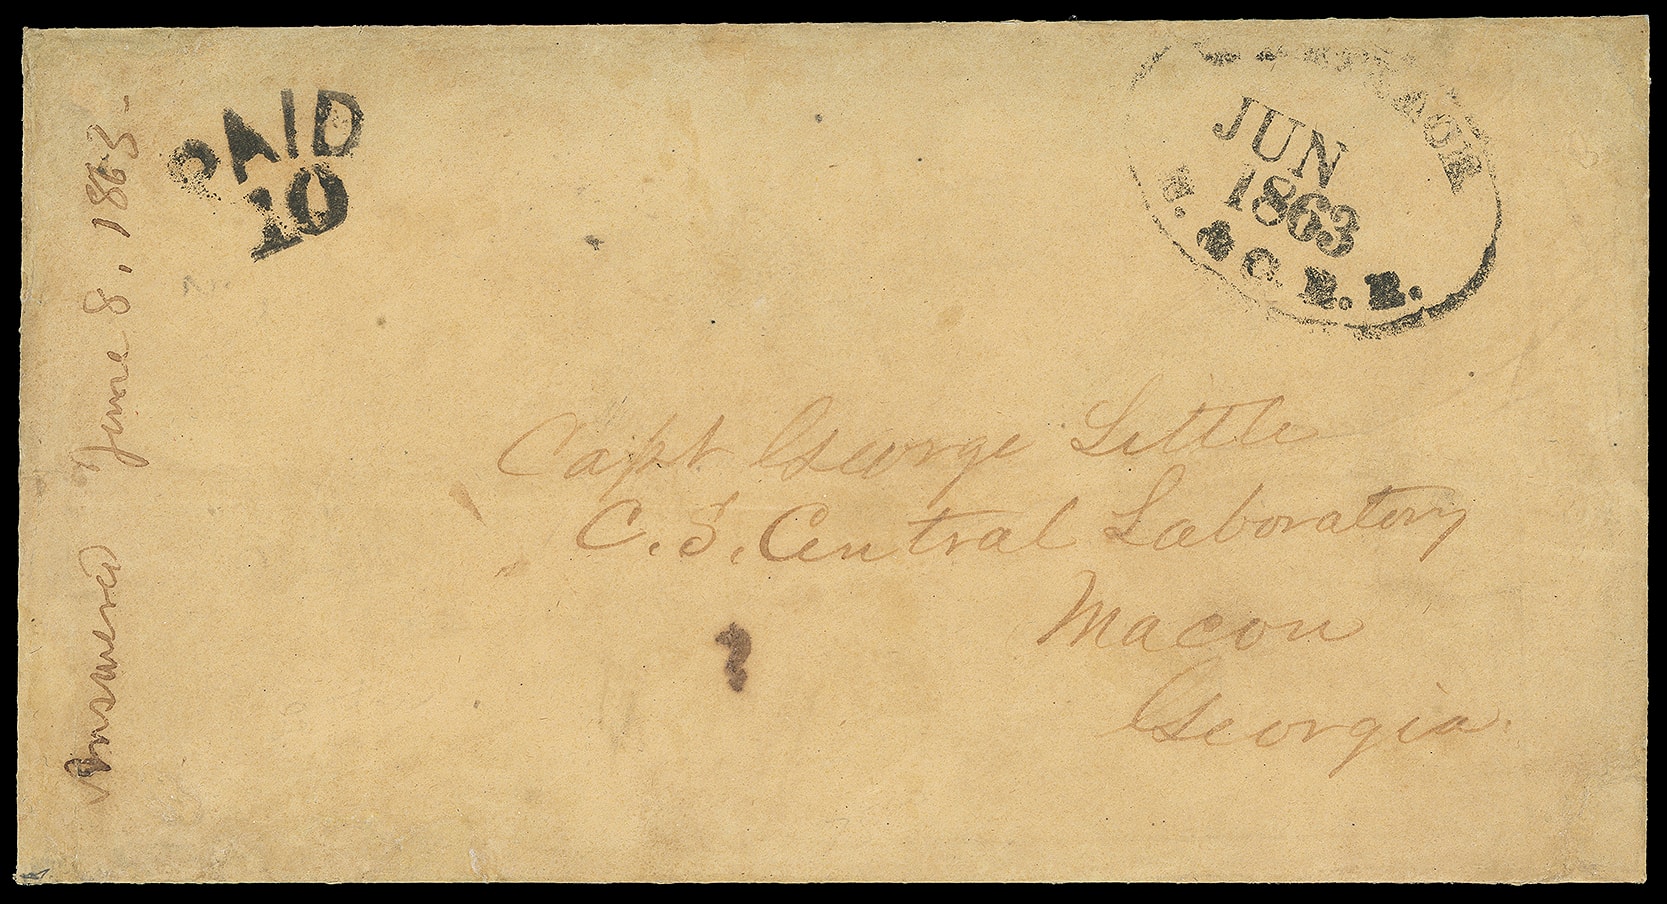 PAID
10
JUN
1863
& G. R. R.
Capt George Little
C. S. Central Laboratory
Macon
Georgia
Answered June 8, 1863-